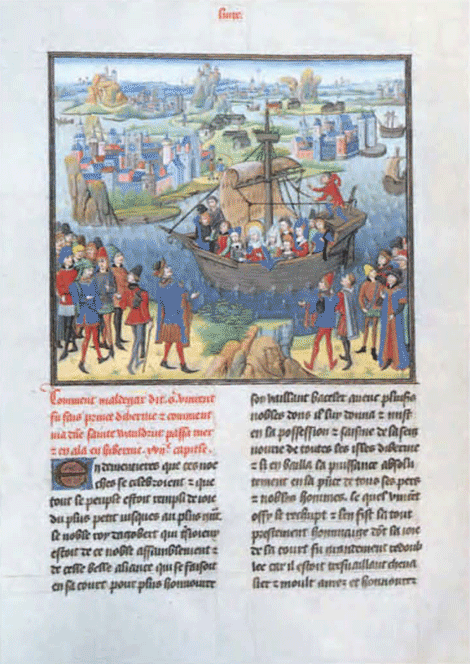 Suite.
Comment maldegar dit q̄ vincent
fu fais prince dibernie & comment
ma dñe sainte waudrut passa mer
& en ala en hibernie. xviiᵉ capitle.
En dementieres que ces noe
ches se celebroient & que
tout le peuple estoit rempli de ioie
du plus petit iusques au plus
le noble roy dagobert qui
estoit de ce noble assamblement &
de celle belle aliance qui se faisoit
en sa court pour plus honnourer
son vaillant
nobles dons il luy donna & mist
en la possession & saisine de la seig
nourie de toutes les isles dibernie
& si en bailla la puissance absolu
tement en la de tous ses pers
& nobles hommes. le quel vincent
offy le rechupt & len fist la tout
prestement hommaige dōt la ioie
de la court fu grandement redoub
lee car il estoit tresvaillant cheva
lier & moult amez et honnourez